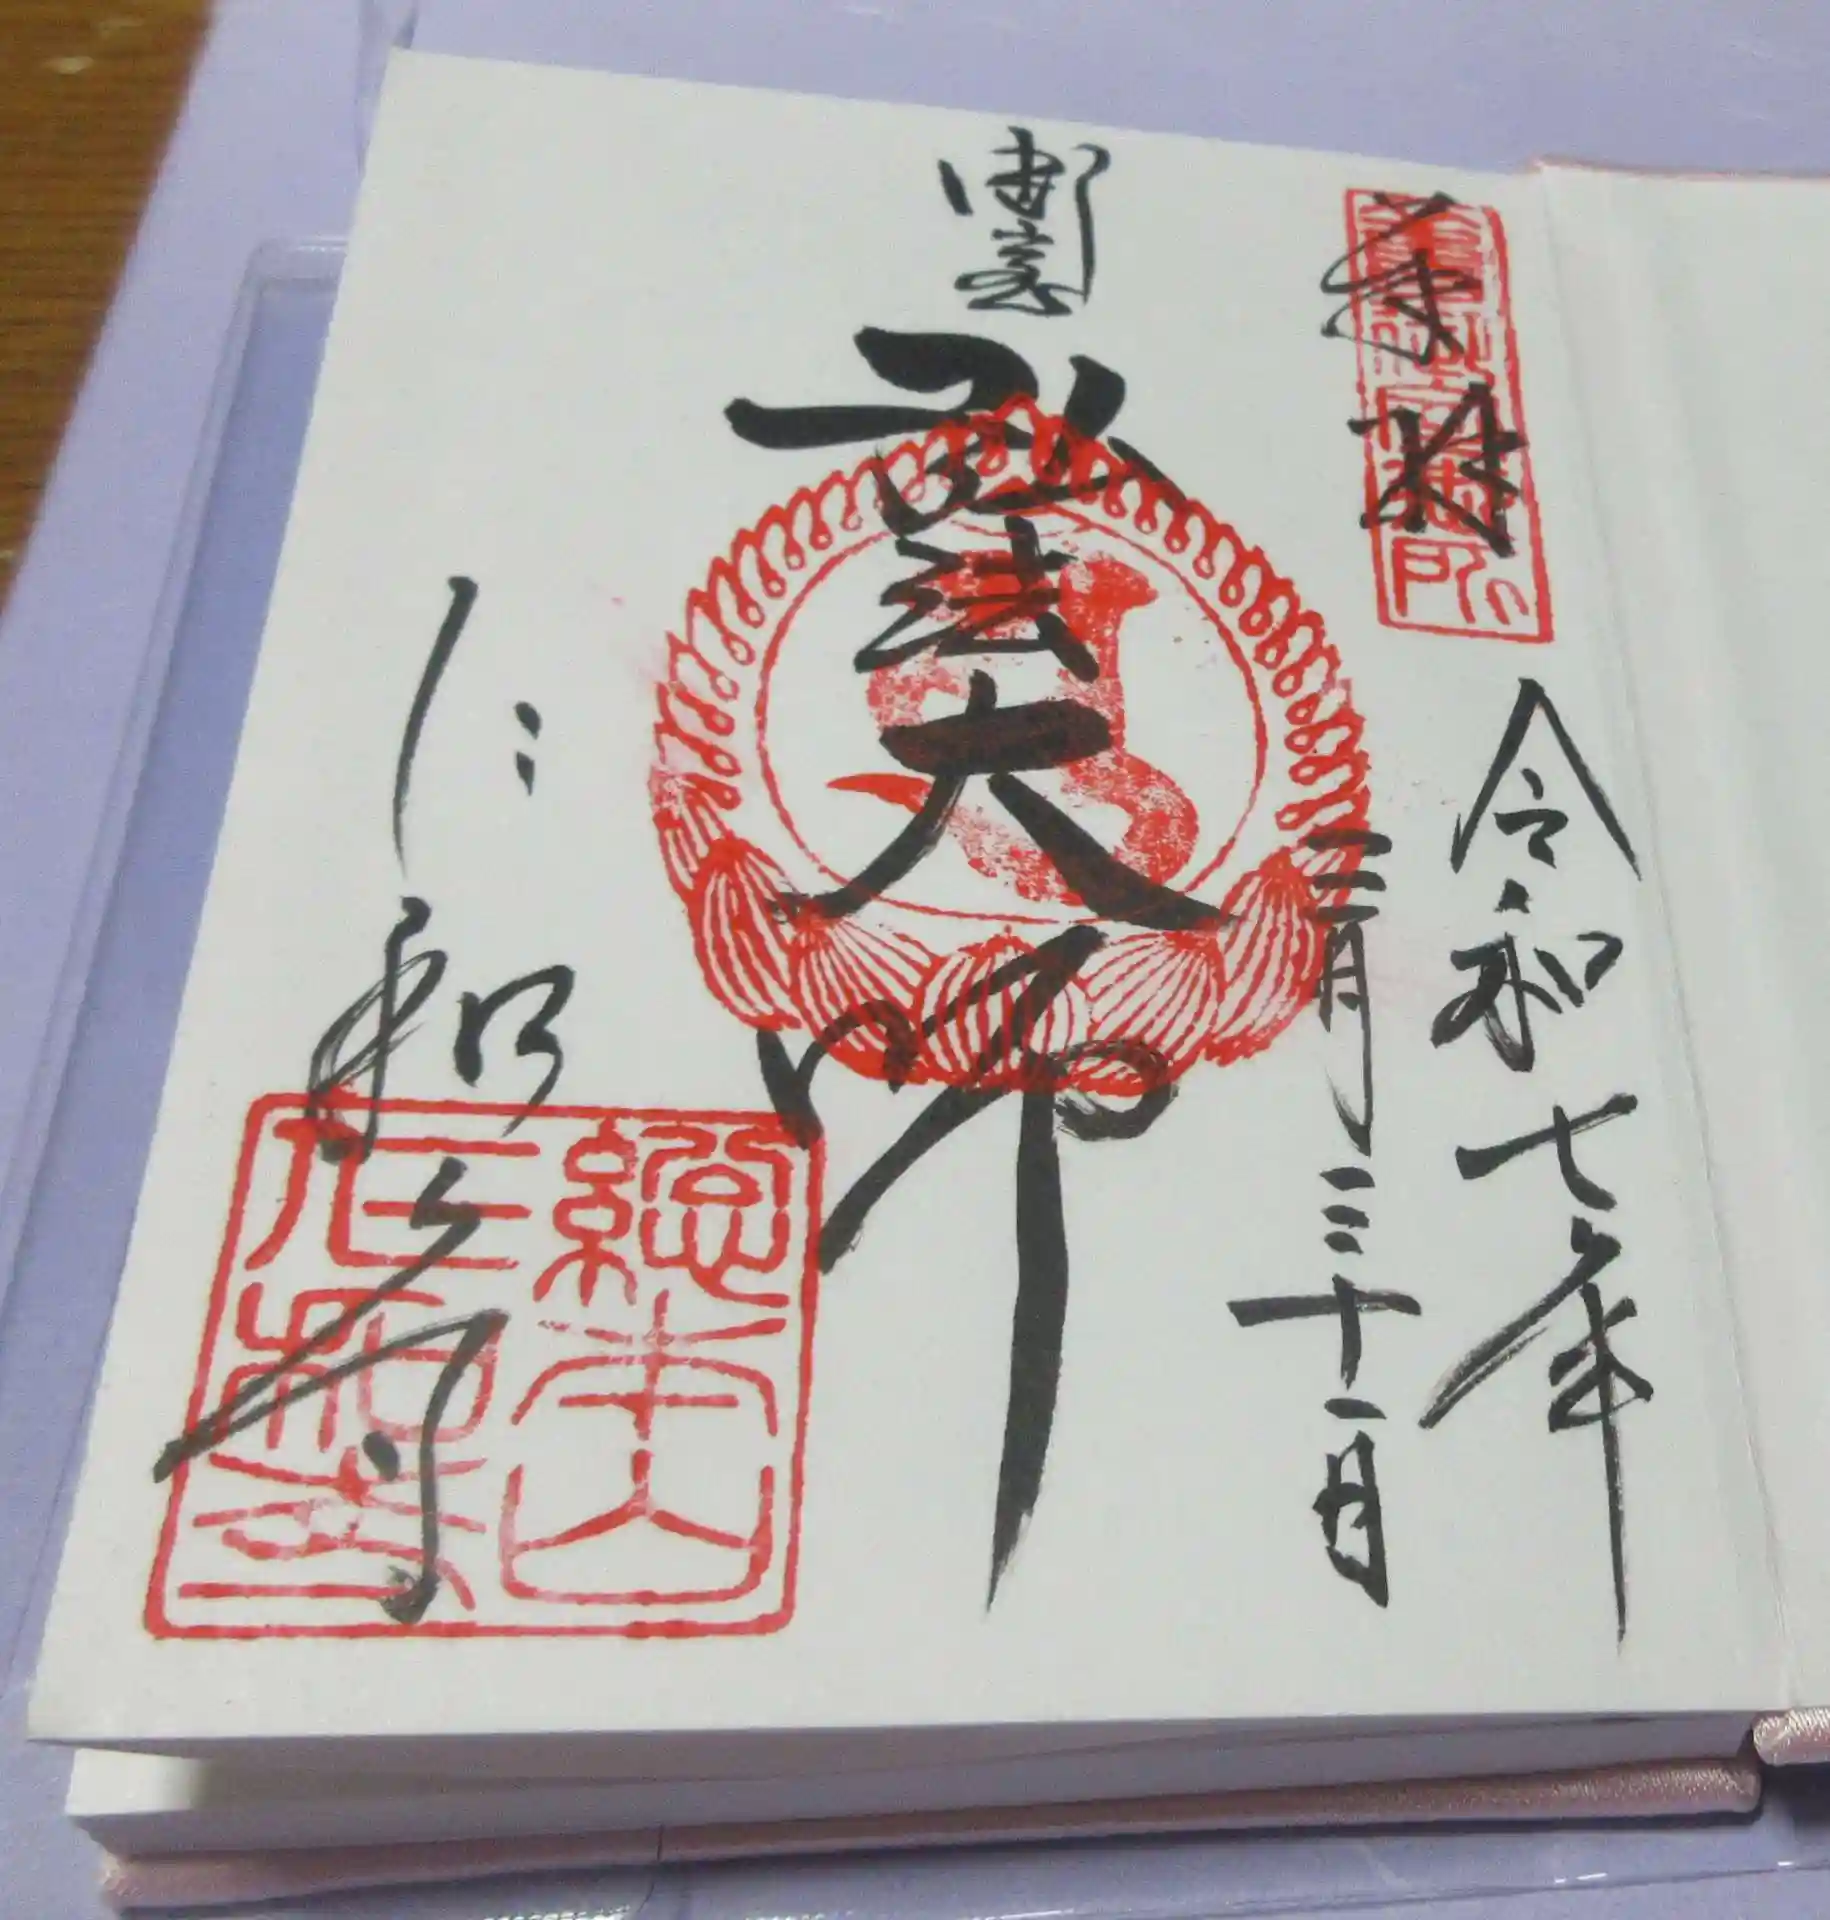 奉拝
令和七年
三月三十一日
御室
弘法大師
仁和寺
總本山
仁和寺